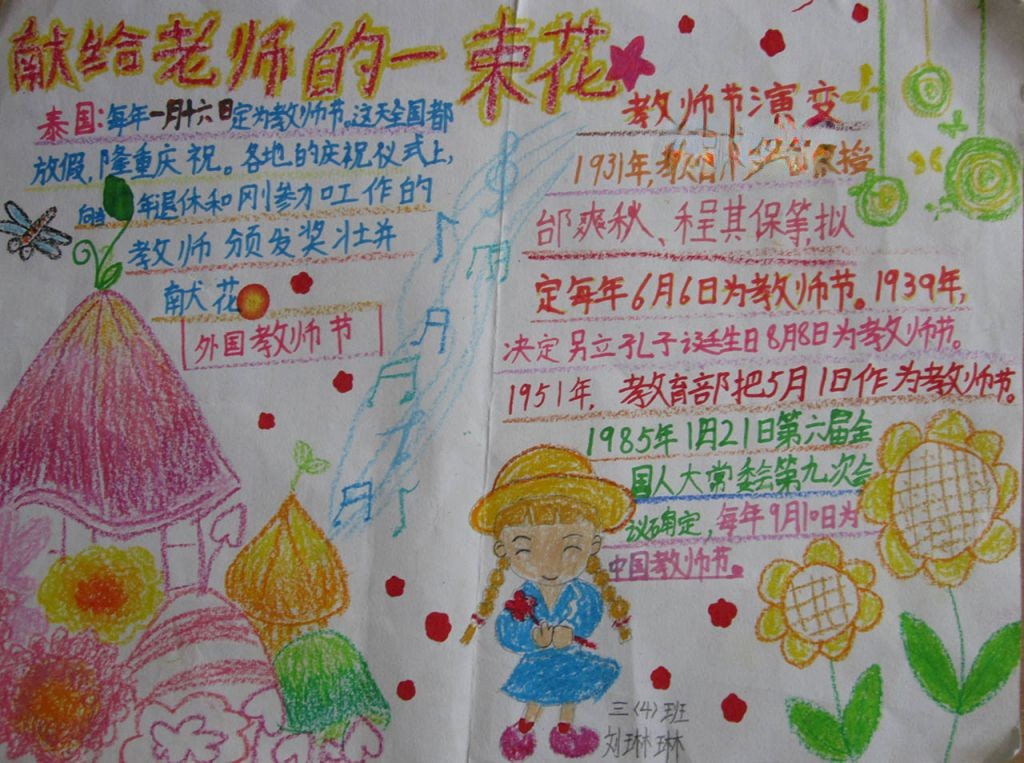 献给老师的一束花
泰国:每年一月十六日定为教师节。这天全国都
放假,隆重庆祝。各地的庆祝仪式上,
向 年退休和刚参加工作的
教师颁发奖壮并
献花
外国教师节
教师节演变
1931年,教 授
邰爽秋、程其保等,拟
定每年6月6日为教师节。1939年,
决定另立孔子诞生日8月8日为教师节。
1951年,教教育部把5月1日作为教师节。
1985年1月21日第六届全
国人大常委会第九次会
议确定,每年9月10日为
中国教师节。
三(4)班
刘琳琳